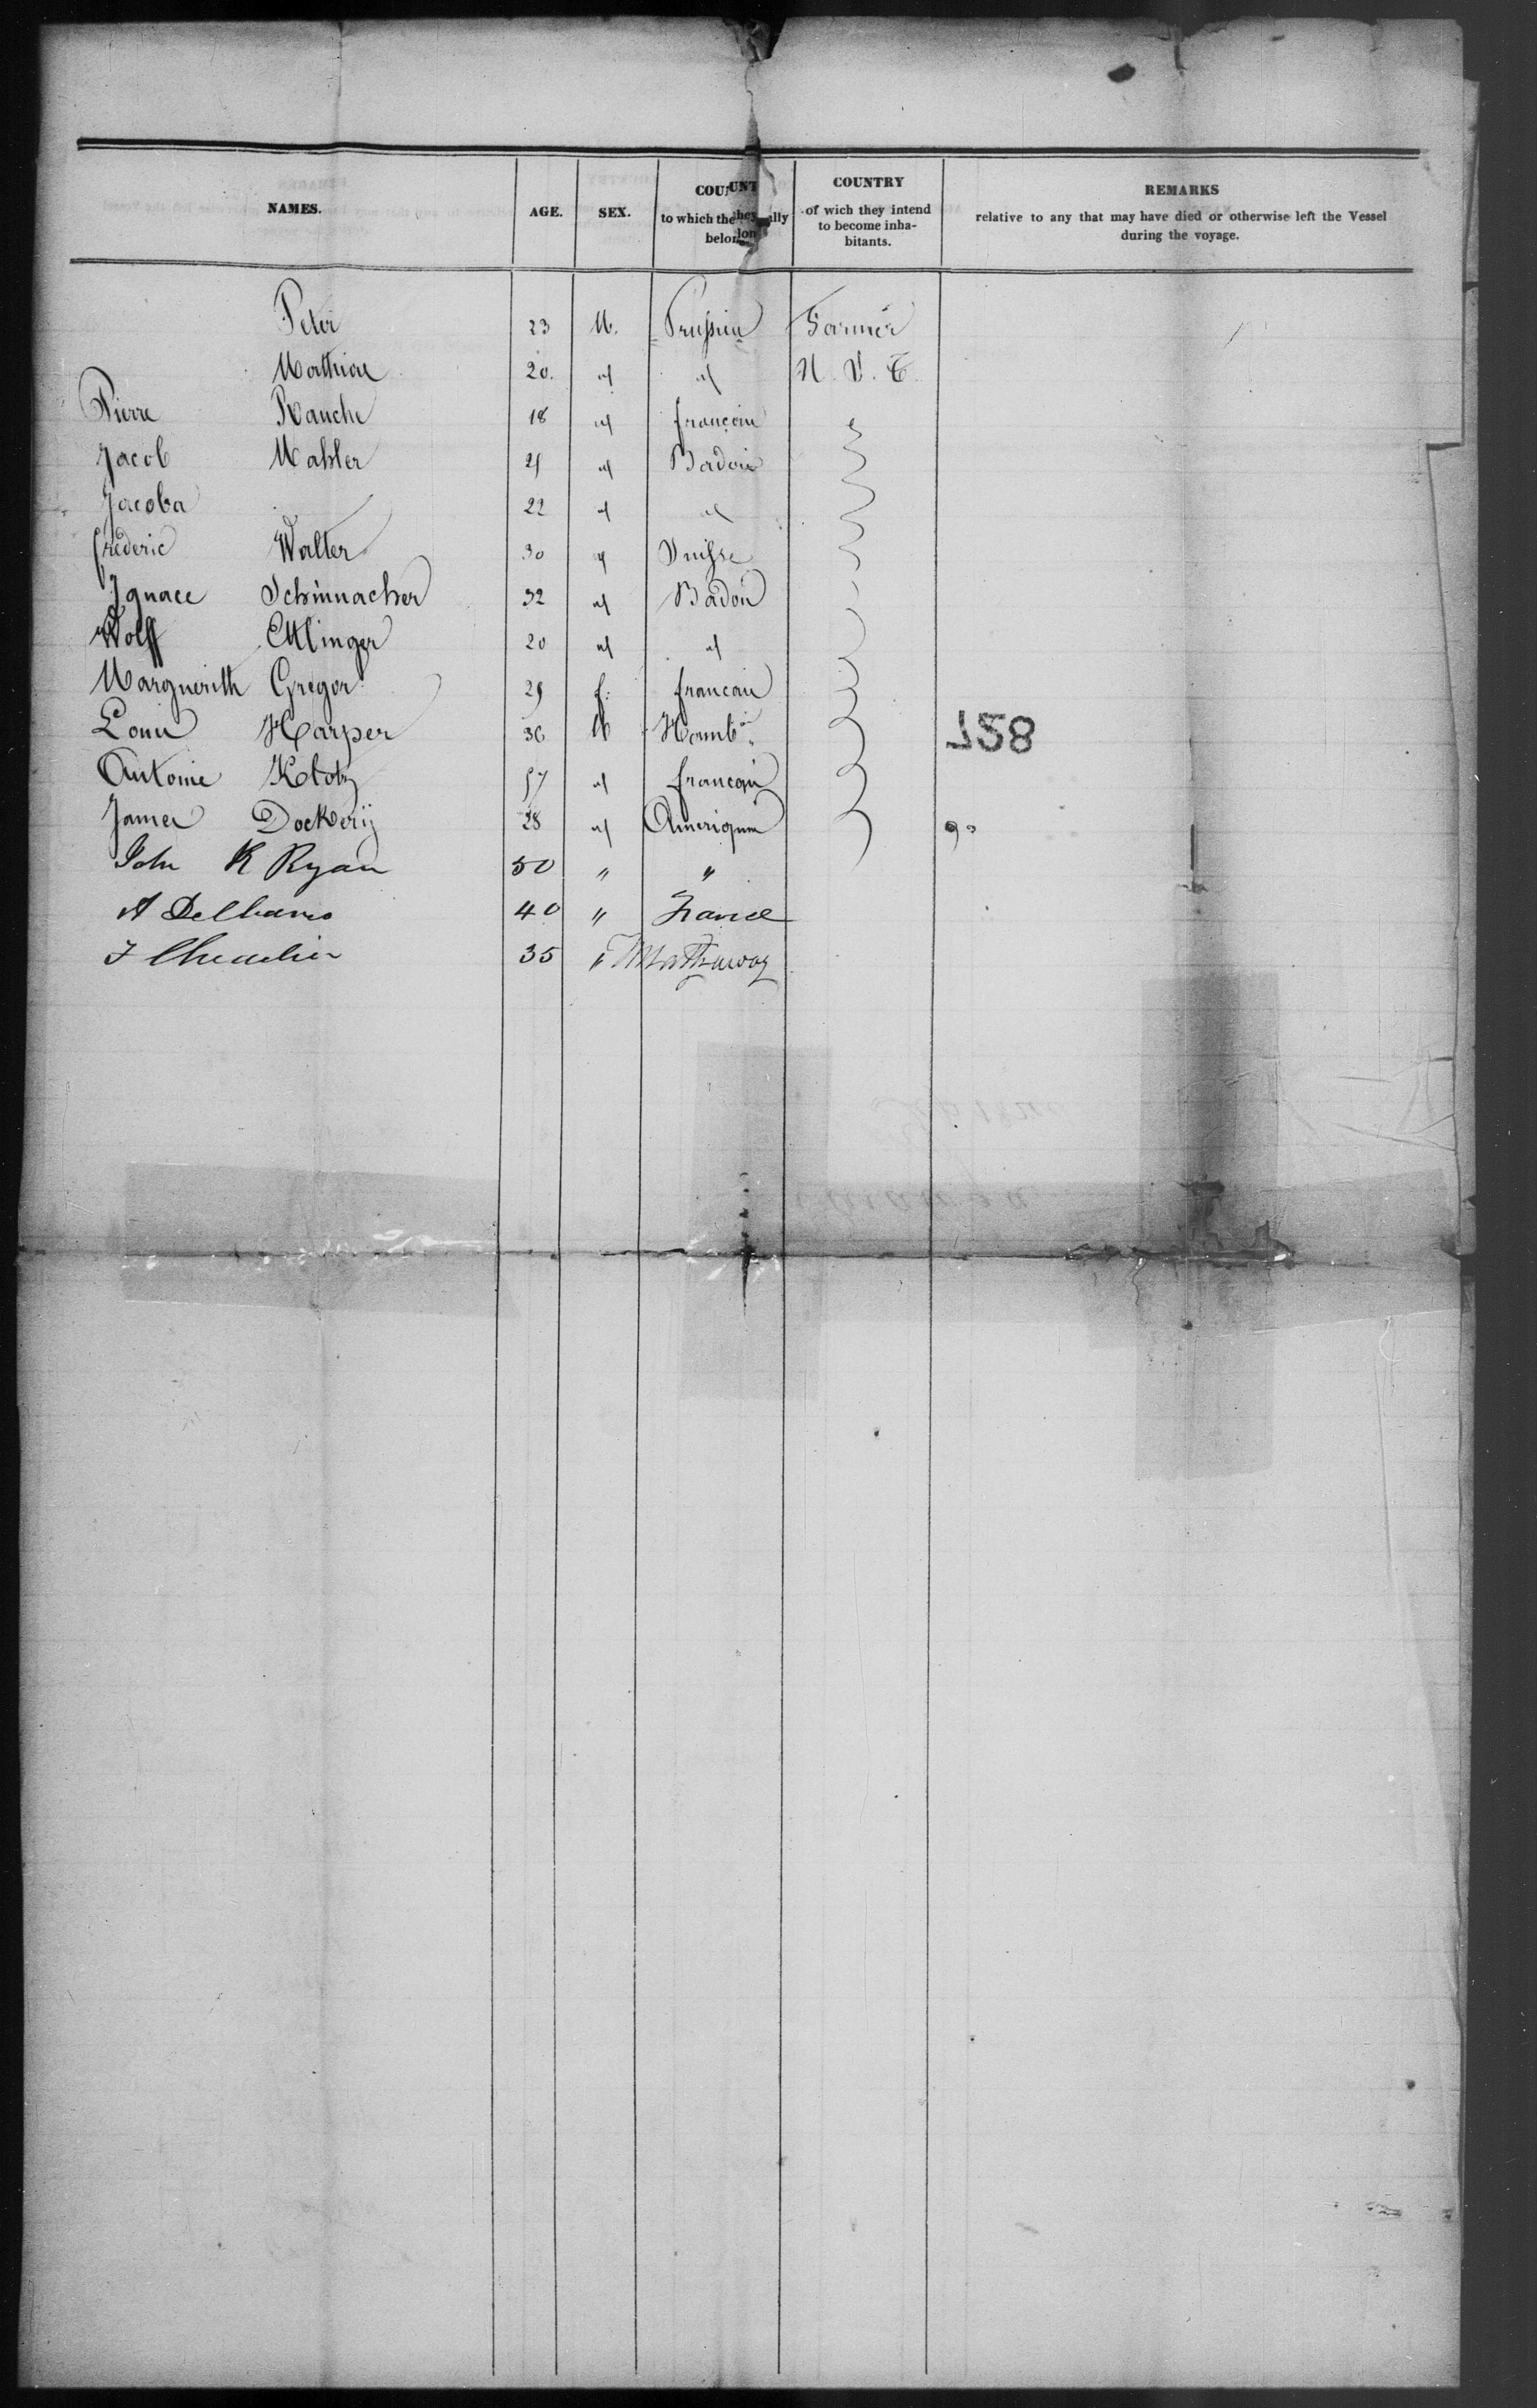 NAMES. AGE. SEX. COUNT to which they ally belon COUNTRY of wich they intend to become inha-bitants. REMARKS relative to any that may have died or otherwise left the Vessel during the voyage.
Peter 23 M. Prussien Farmer
Mathias 20. " " N. V. C.
Pierre Rauche 18 " francais
Jacob Mahler 21 " Badois
Jacoba 22 " "
frederic Walter 30 " Suisse
Ignace Schumacher 32 " Badois
Wolff Ettlinger 20 " "
Marguerith Gregor 29 f. francais
Louis Harper 36 M Hamb.
Antoine Klotz 57 " francais
James Dockery 28 " Americain 90
John R Ryan 50 " "
A 40 " France
35 "
827